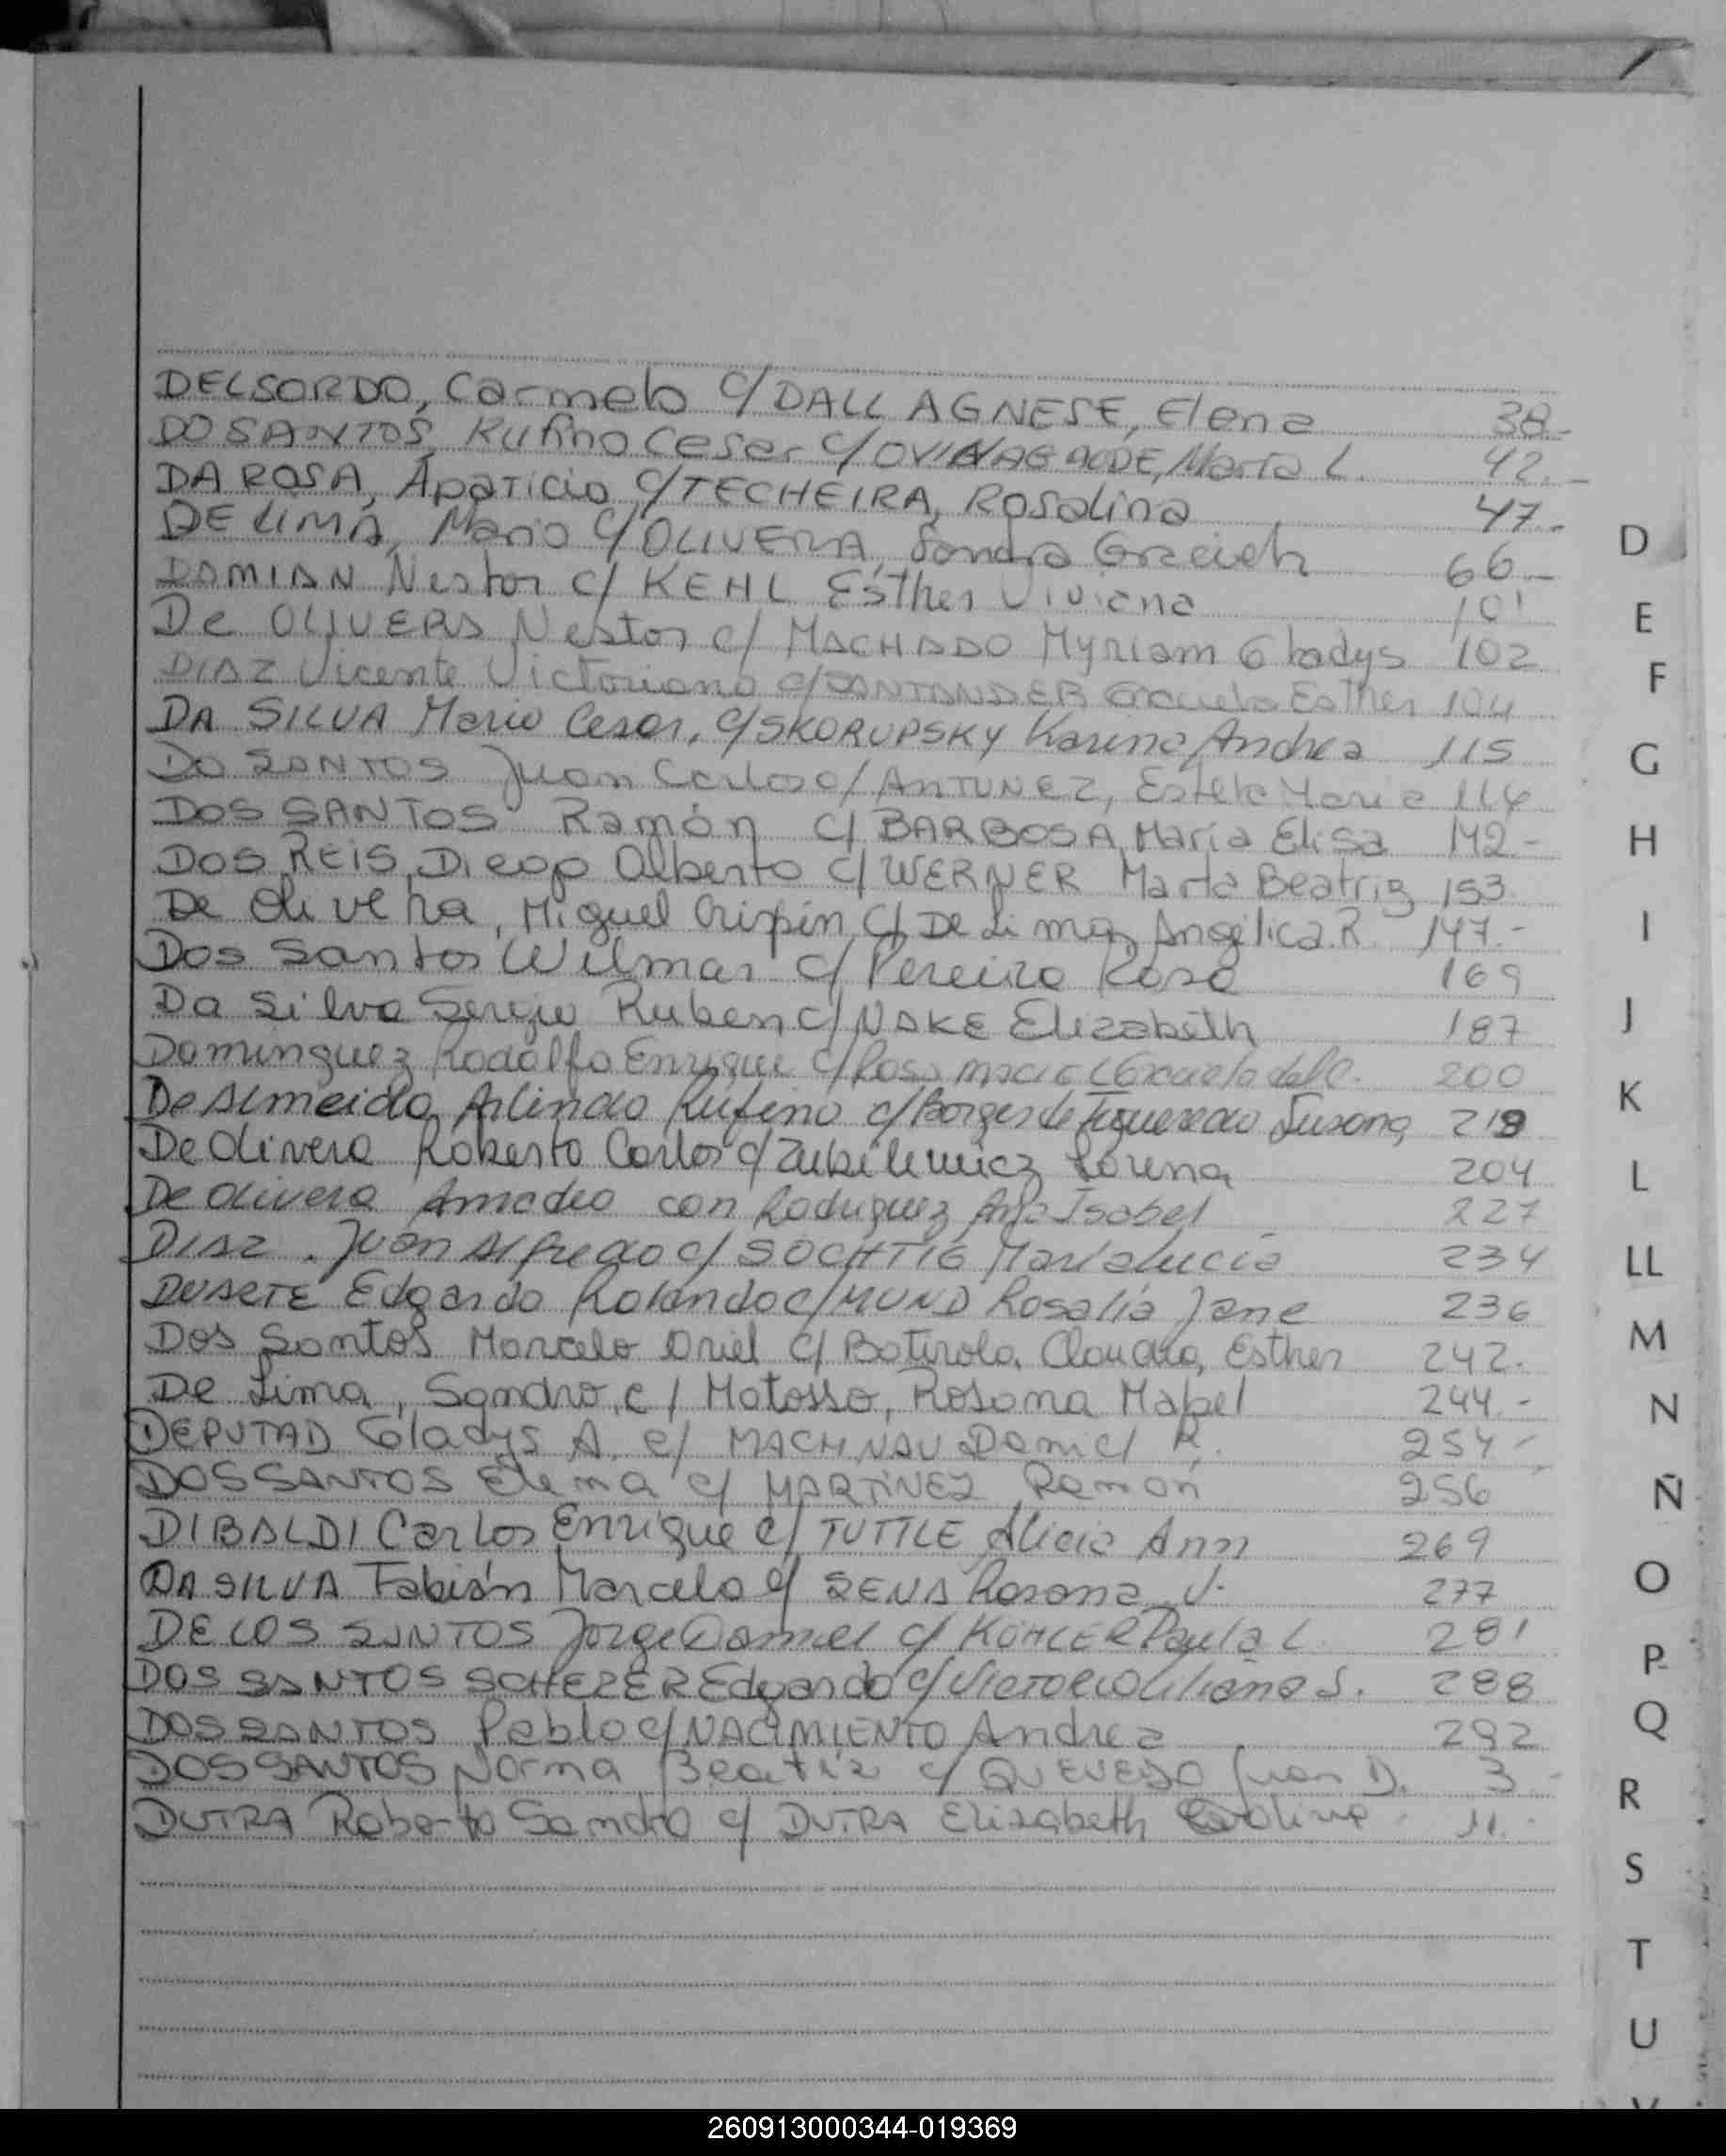 DELSORDO, Carmelo c/ DALL AGNESE, Elena 38-
DO SANTOS, Rufino Cesar c/ Maria L. 42.-
DA ROSA, Aparicio c/ TECHEIRA, Rosalina 47.-
DE LIMA, Mario c/ OLIVERA, Sandra Graciela 66.-
DAMIAN Nestor c/ KEHL Esther Viviana 101
De OLIVERA Nestor c/ MACHADO Myriam Gladys 102
DIAZ Vicente Victoriano c/ SANTANDER Graciela Esther 104
DA SILVA Mario Cesar, c/ SKORUPSKY Karina Andrea 115
DO SANTOS Juan Carlos c/ ANTUNEZ, Estela Maria
DOS SANTOS Ramón c/ BARBOSA, María Elisa 142.-
DOS REIS, Diego Alberto c/ WERNER Marta Beatriz 153
De Olivera, Miguel Crispin c/ De Lima, Angélica R. 147.-
Dos Santos Wilmar c/ Pereira Rosa 169
Da Silva Sergio Ruben c/ NAKE Elizabeth 187
Dominguez Rodolfo Enrique c/ Rosa Graciela del C. 200
De Almeida, Arlindo Rufino c/ Borges de Figueredo Susana, 219
De Olivera Roberto Carlos c/ Lorena 204
De Olivera Amadeo con Rodriguez Ana Isabel 227
DIAZ, Juan Alfredo c/ SOCHTIG Maria Lucia 234
DUARTE Edgardo Rolando c/ MUND Rosalía Jane 236
Dos Santos Marcelo Oriel c/ Botirola, Claudia, Esther 242.
De Lima, Sandro, c/ Matosso, Rosana Mabel 244.-
DEPUTAD Gladys A. c/ MACHNAU Daniel R. 254
DOS SANTOS Elena c/ MARTINEZ Ramon 256
DIBALDI Carlos Enrique c/ TUTTLE Alicia Ann 269
DA SILVA Fabián Marcelo c/ SENA Rosana V. 277
DE LOS SANTOS Jorge Daniel c/ KOHLER Paula L. 281
DOS SANTOS SCHERER Edgardo c/ Liliana S. 288
DOS SANTOS Pablo c/ NACIMIENTO Andrea 292
DOS SANTOS Norma Beatriz c/ QUEVEDO Juan D. 3.-
DUTRA Roberto Sandro c/ DUTRA Elizabeth 11.-
D
E
F
G
H
I
J
K
L
LL
M
N
Ñ
O
P
Q
R
S
T
U
V
260913000344-019369